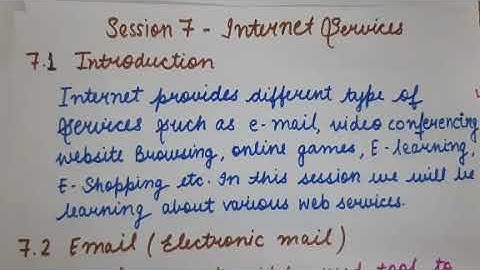 Session 7 - Internet Services
7.1 Introduction
Internet provides different type of
Services such as e-mail, video conferencing
website Browsing, online games, E-learning,
E-Shopping etc. In this session we will be
learning about various web services.
7.2 Email (Electronic mail)